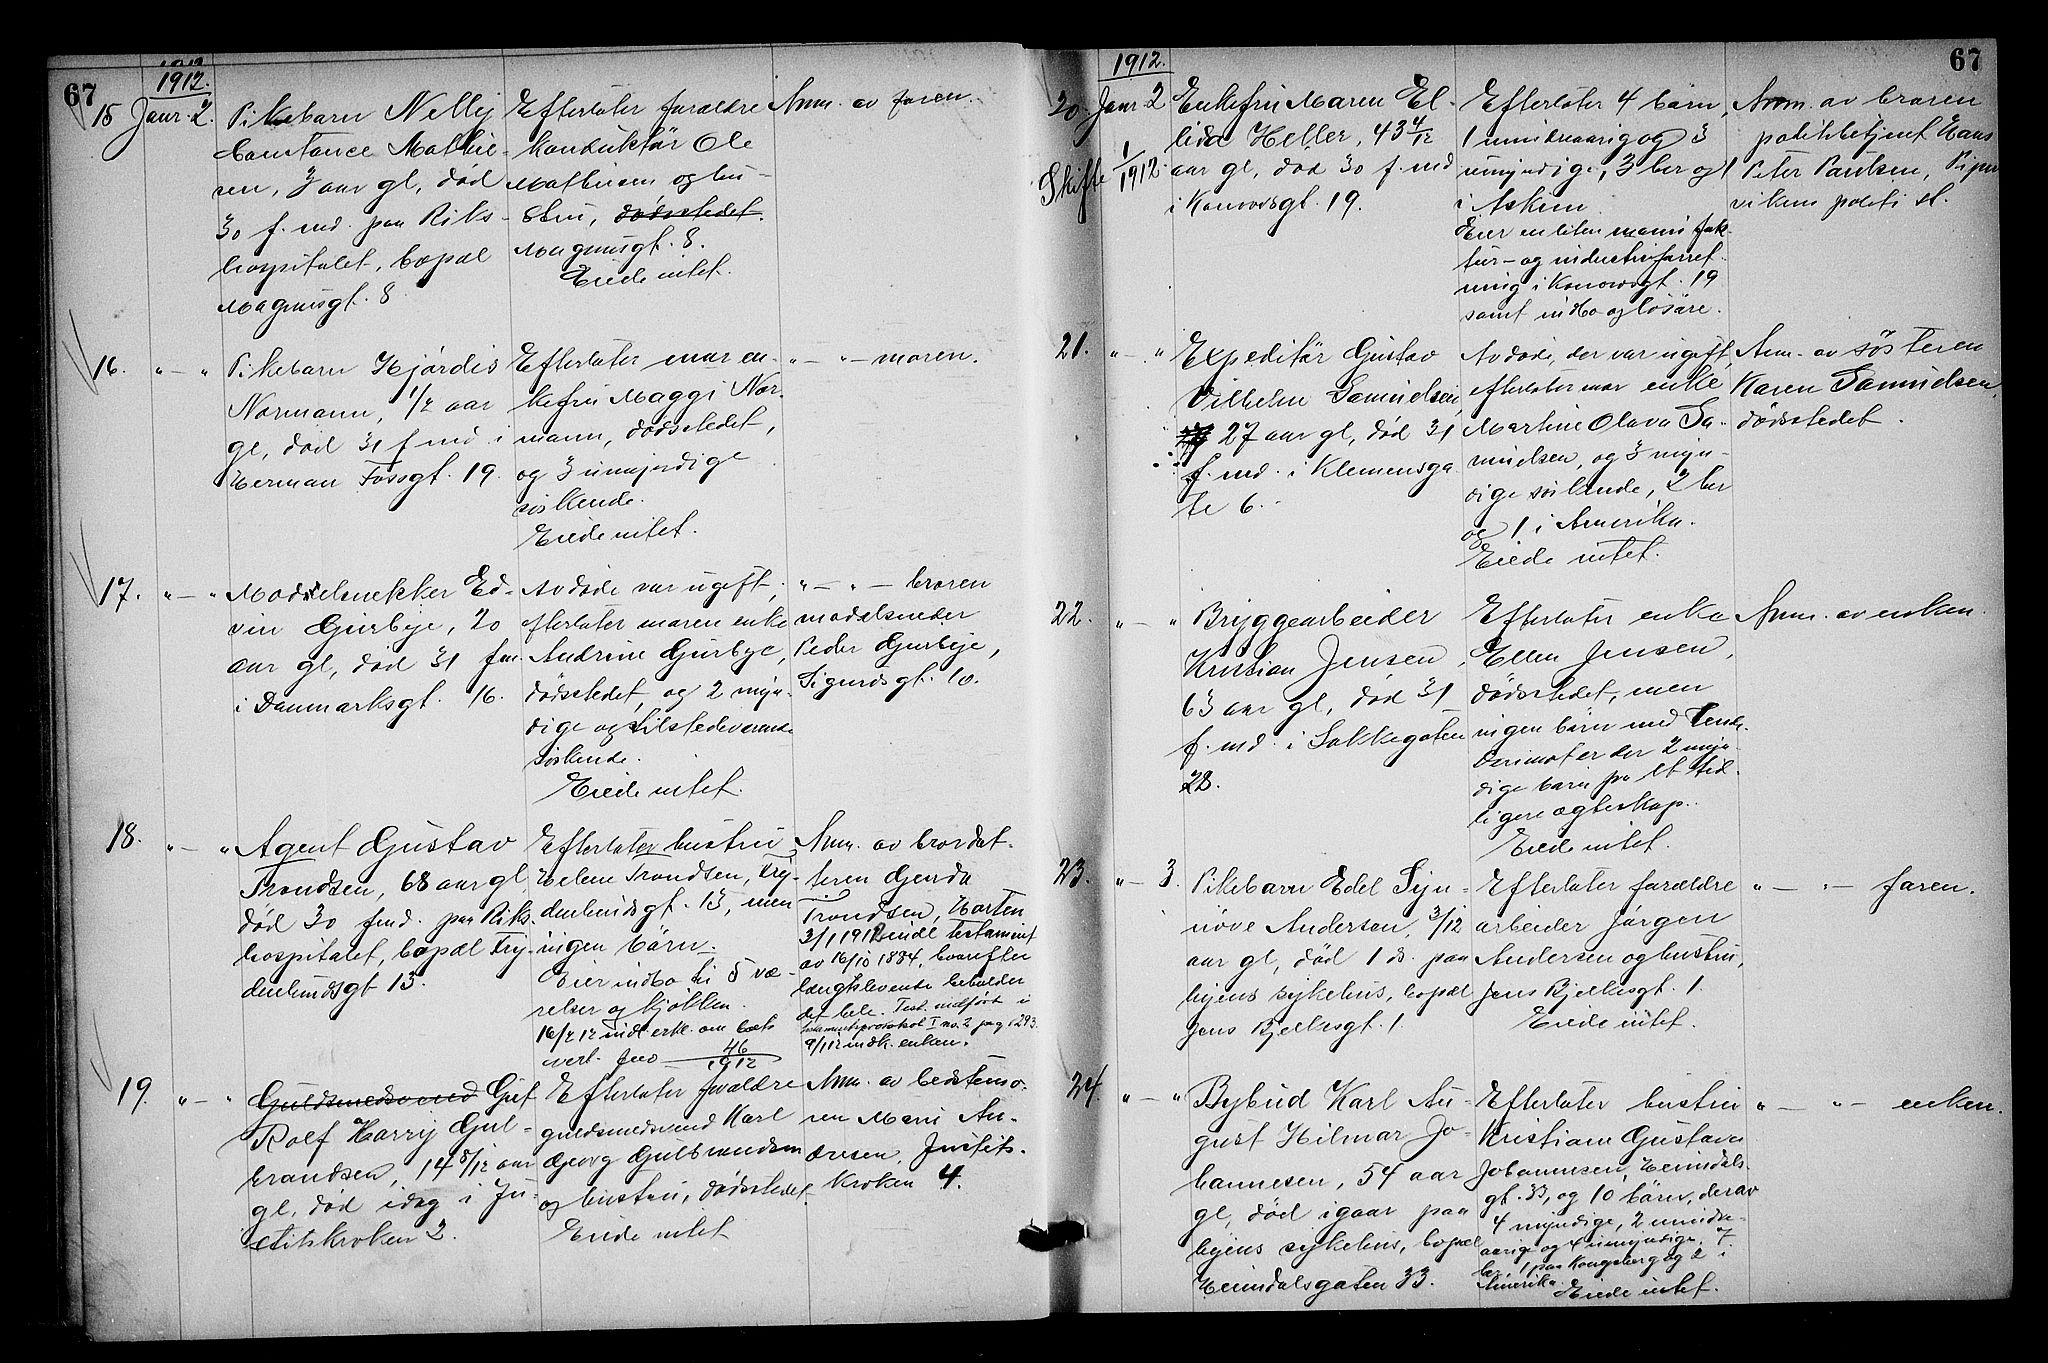 67
1912.
15 Janr. 2.
Pikebarn Nelly
Constance Mathie-
sen, 3 aar gl, død
30 f. md. paa Riks-
hospitalet, bopæl
Magnusgt. 8
Efterlater forældre
konduktör Ole
Mathiesen og hu-
stru, dödsstedet.
Magnusgt. 8.
Eiede intet.
Anm. av faren.
16. " — "
Pikebarn Hjördis
Normann, 1/2 aar
gl, død 31 f md i
Herman Fossgt. 19.
Efterlater mor en-
kefru Maggi Nor-
mann, dödsstedet,
og 3 umyndige
söskende.
Eiede intet.
" — " — moren.
17. " — "
Modelsnekker Ed-
vin Gurbye, 20
aar gl, död 31 fm.
i Danmarksgt. 16.
Avdöde var ugift,
efterlater moren enke
Andrine Gurbye,
dödsstedet, og 2 myn-
dige og tilstedeværende
söskende.
Eiede intet.
" — " — broren
modelsneker
Peder Gurbye,
Sigurdsgt. 10.
18. " — "
Agent Gustav
Trondsen, 68 aar gl
död 30 fmd. paa Riks
hospitalet, bopæl Try-
denlundsgt 13.
Efterlater hustru
Helene Trondsen, Try-
denlundsgt. 13, men
ingen börn.
Eier indbo til 5 væ-
relser og kjökken.
16/2 12 indl. erkl. om boets
verd. Jno 46/1912
Anm. av brordat-
teren Gerda
Trondsen, Horten
3/1 1912 indl testament
av 16/10 1884, hvorefter
længstlevende beholder
det hele. Test. indført i
testamentsprotokol I no. 2 pag. 293.
9/1 12 indk. enken.
19. " — "
Guldsmedsvend Gut
Rolf Harry Gul-
brandsen, 14 8/12 aar
gl, död idag i Ju-
stitskroken 2.
Efterlater forældre
guldsmedsvend Karl
Georg Gulbrandsen
og hustru, dödsstedet.
Eiede intet
Anm. av bedstemo-
ren Marie An-
dresen, Justits-
kroken 4.
67
1912.
20. Janr. 2
Skifte 1/1912.
Enkefru Maren El-
lida Heller, 43 4/12
aar gl, död 30 f. md
i Konowsgt. 19.
Efterlater 4 börn,
1 mindreaarig og 3
umyndige, 3 her og 1
i Askim.
Eier en liten manufak-
tur- og industriforret-
ning i Konowsgt. 19
samt indbo og lösöre.
Anm. av broren
politibetjent Hans
Peter Paulsen, Piper
vikens politi st.
21. " — "
Expeditör Gustav
Vilhelm Samuelsen,
27 aar gl, död 31
f. md. i Klemensga
te 6.
Avdöde, der var ugift,
efterlater mor enke
Martine Olava Sa-
muelsen, og 3 myn-
dige söskende, 2 her
og 1 i Amerika.
Eiede intet.
Anm. av søsteren
Karen Samuelsen,
dödsstedet.
22. " — "
Bryggearbeider
Kristian Jensen,
63 aar gl, död 31
f. md. i Sakkegaten
28.
Efterlater enke
Ellen Jensen,
dödsstedet, men
ingen börn med hende.
Derimot er der 2 myn-
dige barn fra et tid-
ligere ægteskap.
Eiede intet.
Anm. av enken.
23. " — 3.
Pikebarn Edel Syn-
növe Andersen, 3/12
aar gl, död 1 ds. paa
byens sykehus, bopæl
Jens Bjelkesgt. 1.
Efterlater forældre
arbeider Jörgen
Andersen og hustru,
Jens Bjelkesgt. 1.
Eiede intet.
" — " — faren.
24. " — "
Bybud Karl Au-
gust Hilmar Jo-
hannesen, 54 aar
gl, död igaar paa
byens sykehus, bopæl
Heimdalsgaten 33.
Efterlater hustru
Kristiane Gustava
Johannesen, Heimdals-
gt. 33, og 10 börn, derav
4 myndige, 2 mindre-
aarige og 4 umyndige. 7
her 1 paa Kongsberg og 2 i
Amerika. Eiede intet.
" — " — enken.